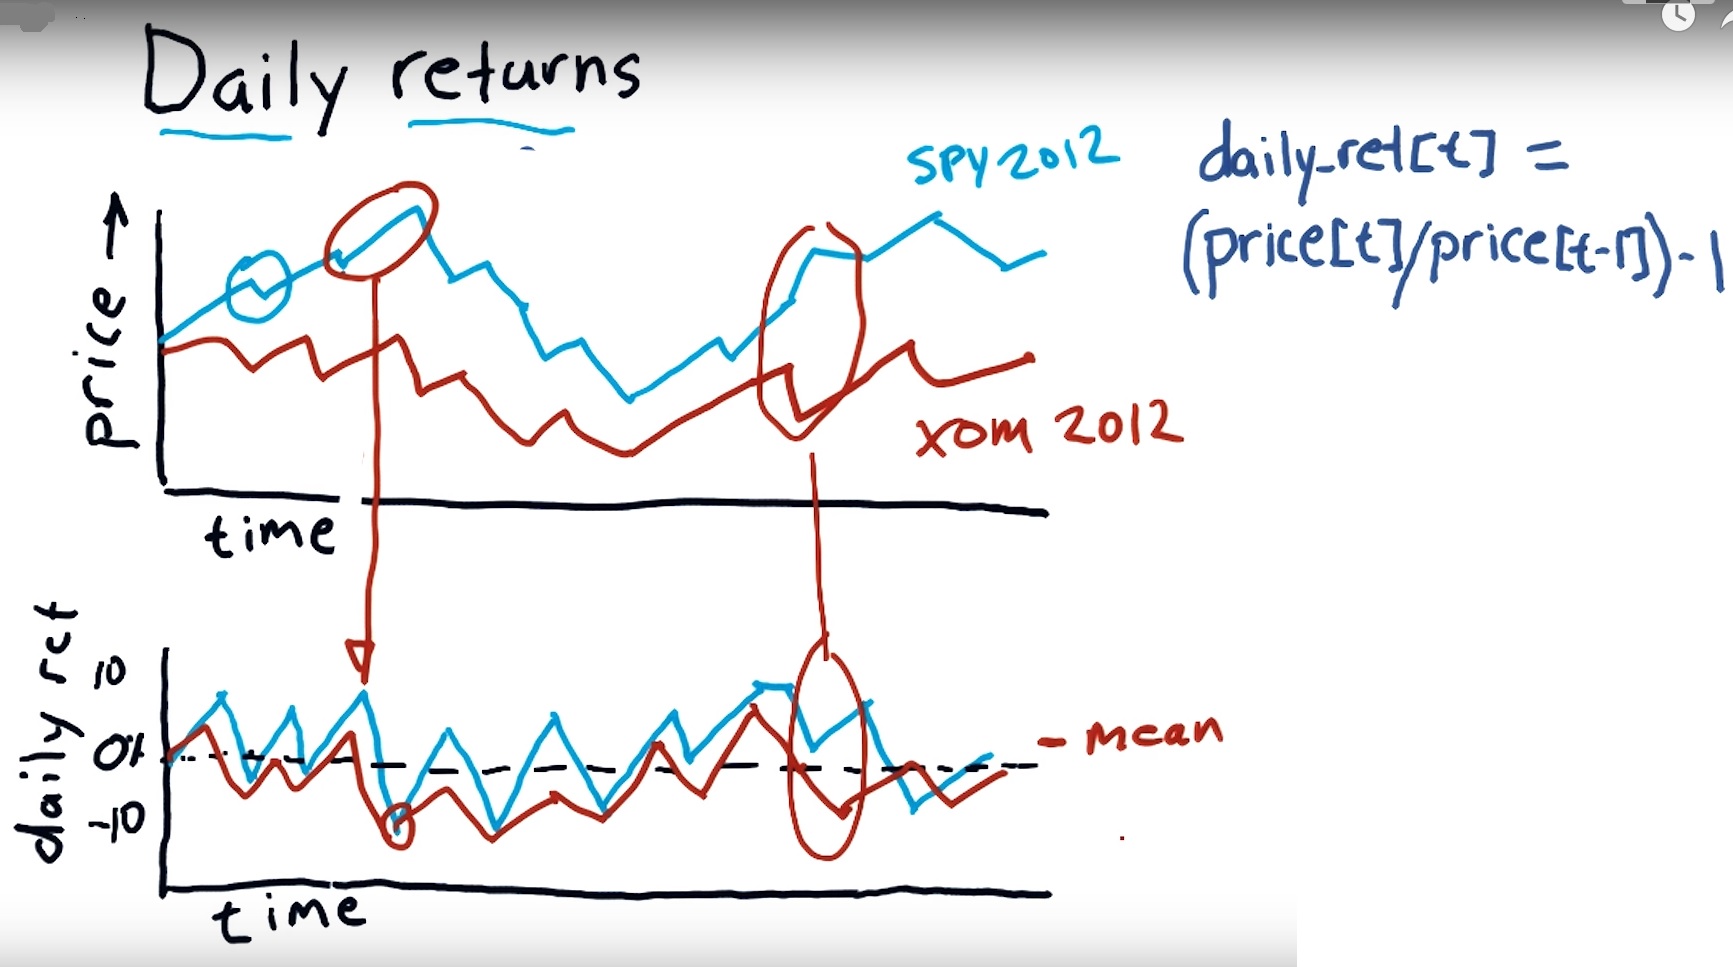 Daily returns
SPY 2012
daily_ret[t] =
(price[t]/price[t-1]) - 1
price →
XOM 2012
time
daily ret
10
0%
-10
- mean
time